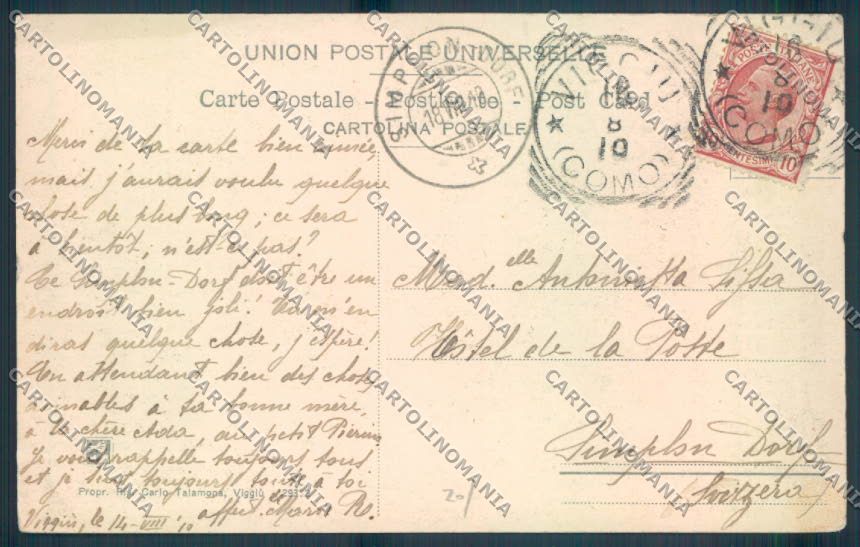 UNION POSTALE UNIVERSELLE
Carte Postale - Postkarte - Post Card
CARTOLINA POSTALE
SIMPLON DORF
18.VIII.10
VIGGIÙ
8
10
(COMO)
VIGGIÙ
8
10
(COMO)
POSTE ITALIANE
CENTESIMI 10
Merci de ta carte bien aimée,
mais j'aurais voulu quelque
chose de plus long; ce sera
à bientôt, n'est-ce pas?
Le Simplon-Dorf doit être un
endroit bien joli! Tu m'en
diras quelque chose, j'espère!
En attendant bien des choses
aimables à ta bonne mère,
à la chère Ada, au petit
Je vous rappelle toujours tous
et je suis toujours toute à toi
Viggiù, le 14-VIII 10 Maria Ro.
Propr. Carlo Talamona, Viggiù
Mad.elle Antonietta
Hôtel de la Poste
Simplon Dorf
(Svizzera)
20/
CARTOLINOMANIA